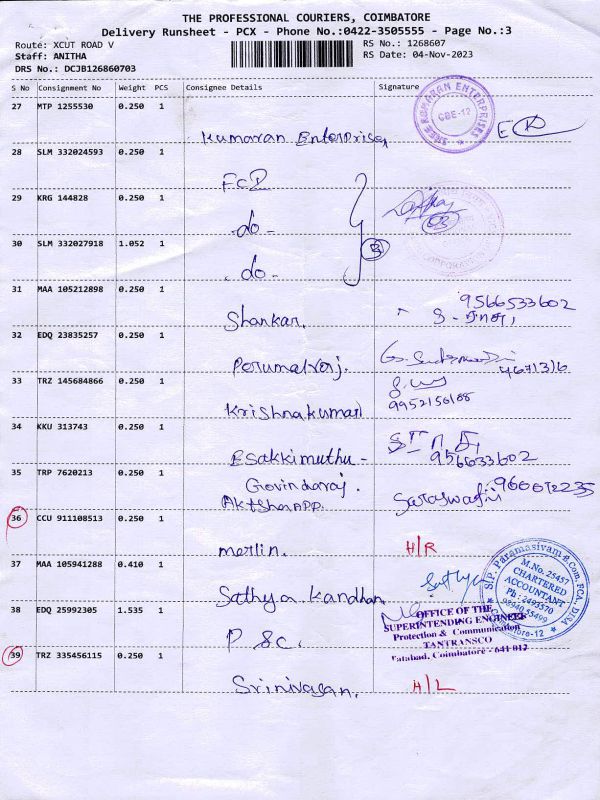 THE PROFESSIONAL COURIERS, COIMBATORE
Delivery Runsheet - PCX - Phone No.:0422-3505555 - Page No.:3
Route: XCUT ROAD V
RS No.: 1268607
Staff: ANITHA
RS Date: 04-Nov-2023
DRS No.: DCJB126860703
S No Consignment No Weight PCS Consignee Details Signature
27 MTP 1255530 0.250 1
Kumaran Enterprises
SREE KUMARAN ENTERPRISES
CBE-12
28 SLM 332024593 0.250 1
FCI
29 KRG 144828 0.250 1
-do-
30 SLM 332027918 1.052 1
-do-
3
31 MAA 105212898 0.250 1
Shankar.
9566533602
32 EDQ 23835257 0.250 1
Perumalraj.
33 TRZ 145684866 0.250 1
Krishnakumar
34 KKU 313743 0.250 1
Esakkimuthu -
9566533602
35 TRP 7620213 0.250 1
Govindaraj.
Saraswathi
36 CCU 911108513 0.250 1
merlin.
H/R
37 MAA 105941288 0.410 1
Sathya Kandhan
Sathya
S.P. Paramasivam B.Com, FCA, DISA
M.No. 25457
CHARTERED
ACCOUNTANT
Ph: 2493570
95940 55499
38 EDQ 25992305 1.535 1
P &c.
OFFICE OF THE
SUPERINTENDING ENGINEER
Protection & Communication
TANTRANSCO
Tatabad, Coimbatore - 641 012
39 TRZ 335456115 0.250 1
Srinivasan.
H/L